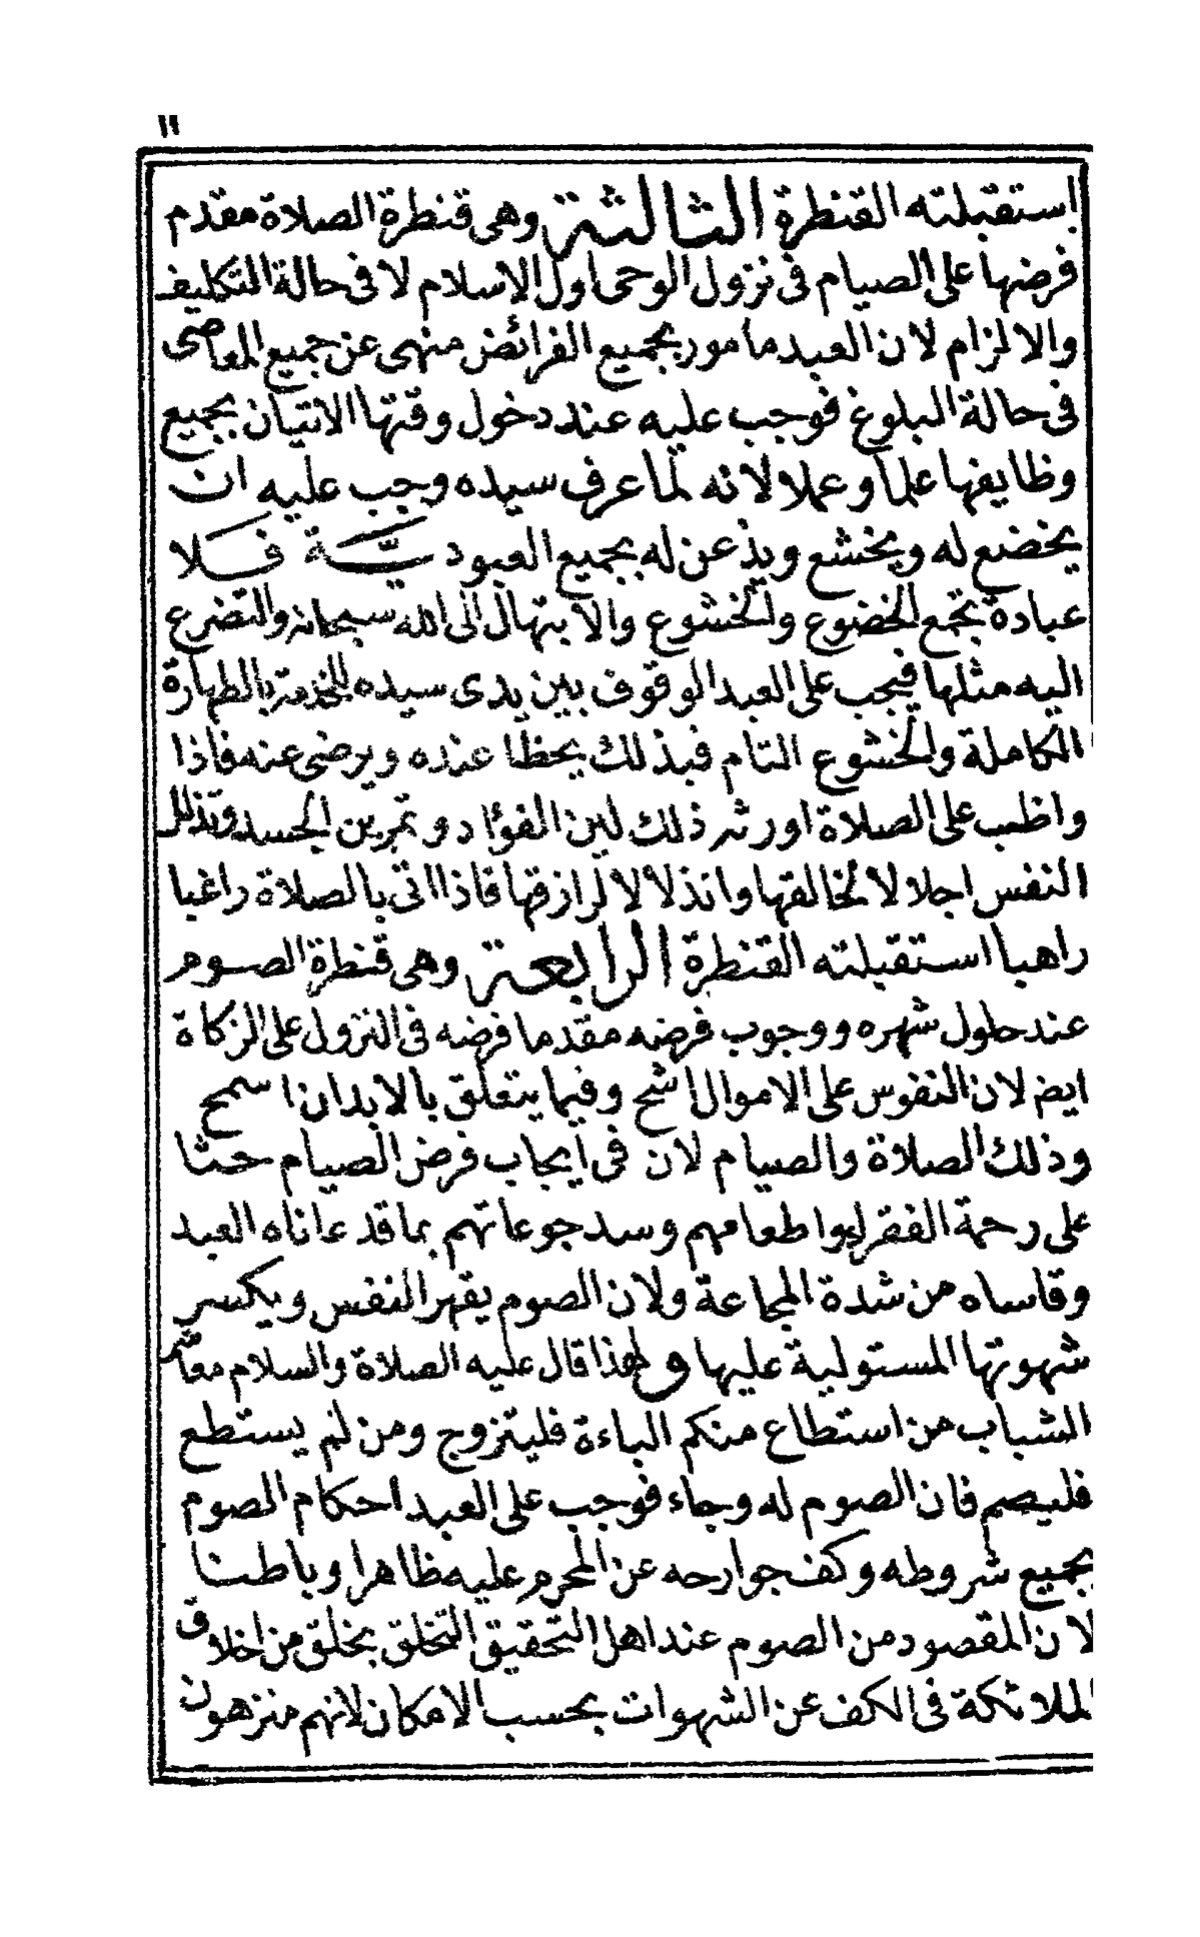 ١١
استقبلته القنطرة الثالثة وهى قنطرة الصلاة مقدم
فرضها على الصيام فى نزول الوحى اول الاسلام لا فى حالة التكليف
والالزام لان العبد مامور بجميع الفرائض منهى عن جميع المعاصى
فى حالة البلوغ فوجب عليه عند دخول وقتها الاتيان بجميع
وظايفها علما وعملا لانه لما عرف سيده وجب عليه ان
يخضع له ويخشع ويذعن له بجميع العبودية فلا
عبادة تجمع الخضوع والخشوع والابتهال الى الله سبحانه والتضرع
اليه مثلها فيجب على العبد الوقوف بين يدى سيده للخدمة بالطهارة
الكاملة والخشوع التام فبذلك يحظا عنده ويرضى عنه فاذا
واظب على الصلاة اورثه ذلك لين الفؤاد وتمرين الجسد وتذلل
النفس اجلالا لخالقها وانذلالا لرازقها فاذا اتى بالصلاة راغبا
راهبا استقبلته القنطرة الرابعة وهى قنطرة الصوم
عند حلول شهره ووجوب فرضه مقدما فرضه فى النزول على الزكاة
ايضم لان النفوس على الاموال اشح وفيما يتعلق بالابدان اسمح
وذلك الصلاة والصيام لان فى ايجاب فرض الصيام حثا
على رحمة الفقراء واطعامهم وسد جوعاتهم بما قد عاناه العبد
وقاساه من شدة المجاعة ولان الصوم يقهر النفس ويكسر
شهوتها المستولية عليها ولهذا قال عليه الصلاة والسلام معاشر
الشباب من استطاع منكم الباءة فليتزوج ومن لم يستطع
فليصم فان الصوم له وجاء فوجب على العبد احكام الصوم
بجميع شروطه وكف جوارحه عن المحرم عليه ظاهرا وباطنا
لان المقصود من الصوم عند اهل التحقيق التخلق بخلق من اخلاق
الملائكة فى الكف عن الشهوات بحسب الامكان لانهم منزهون